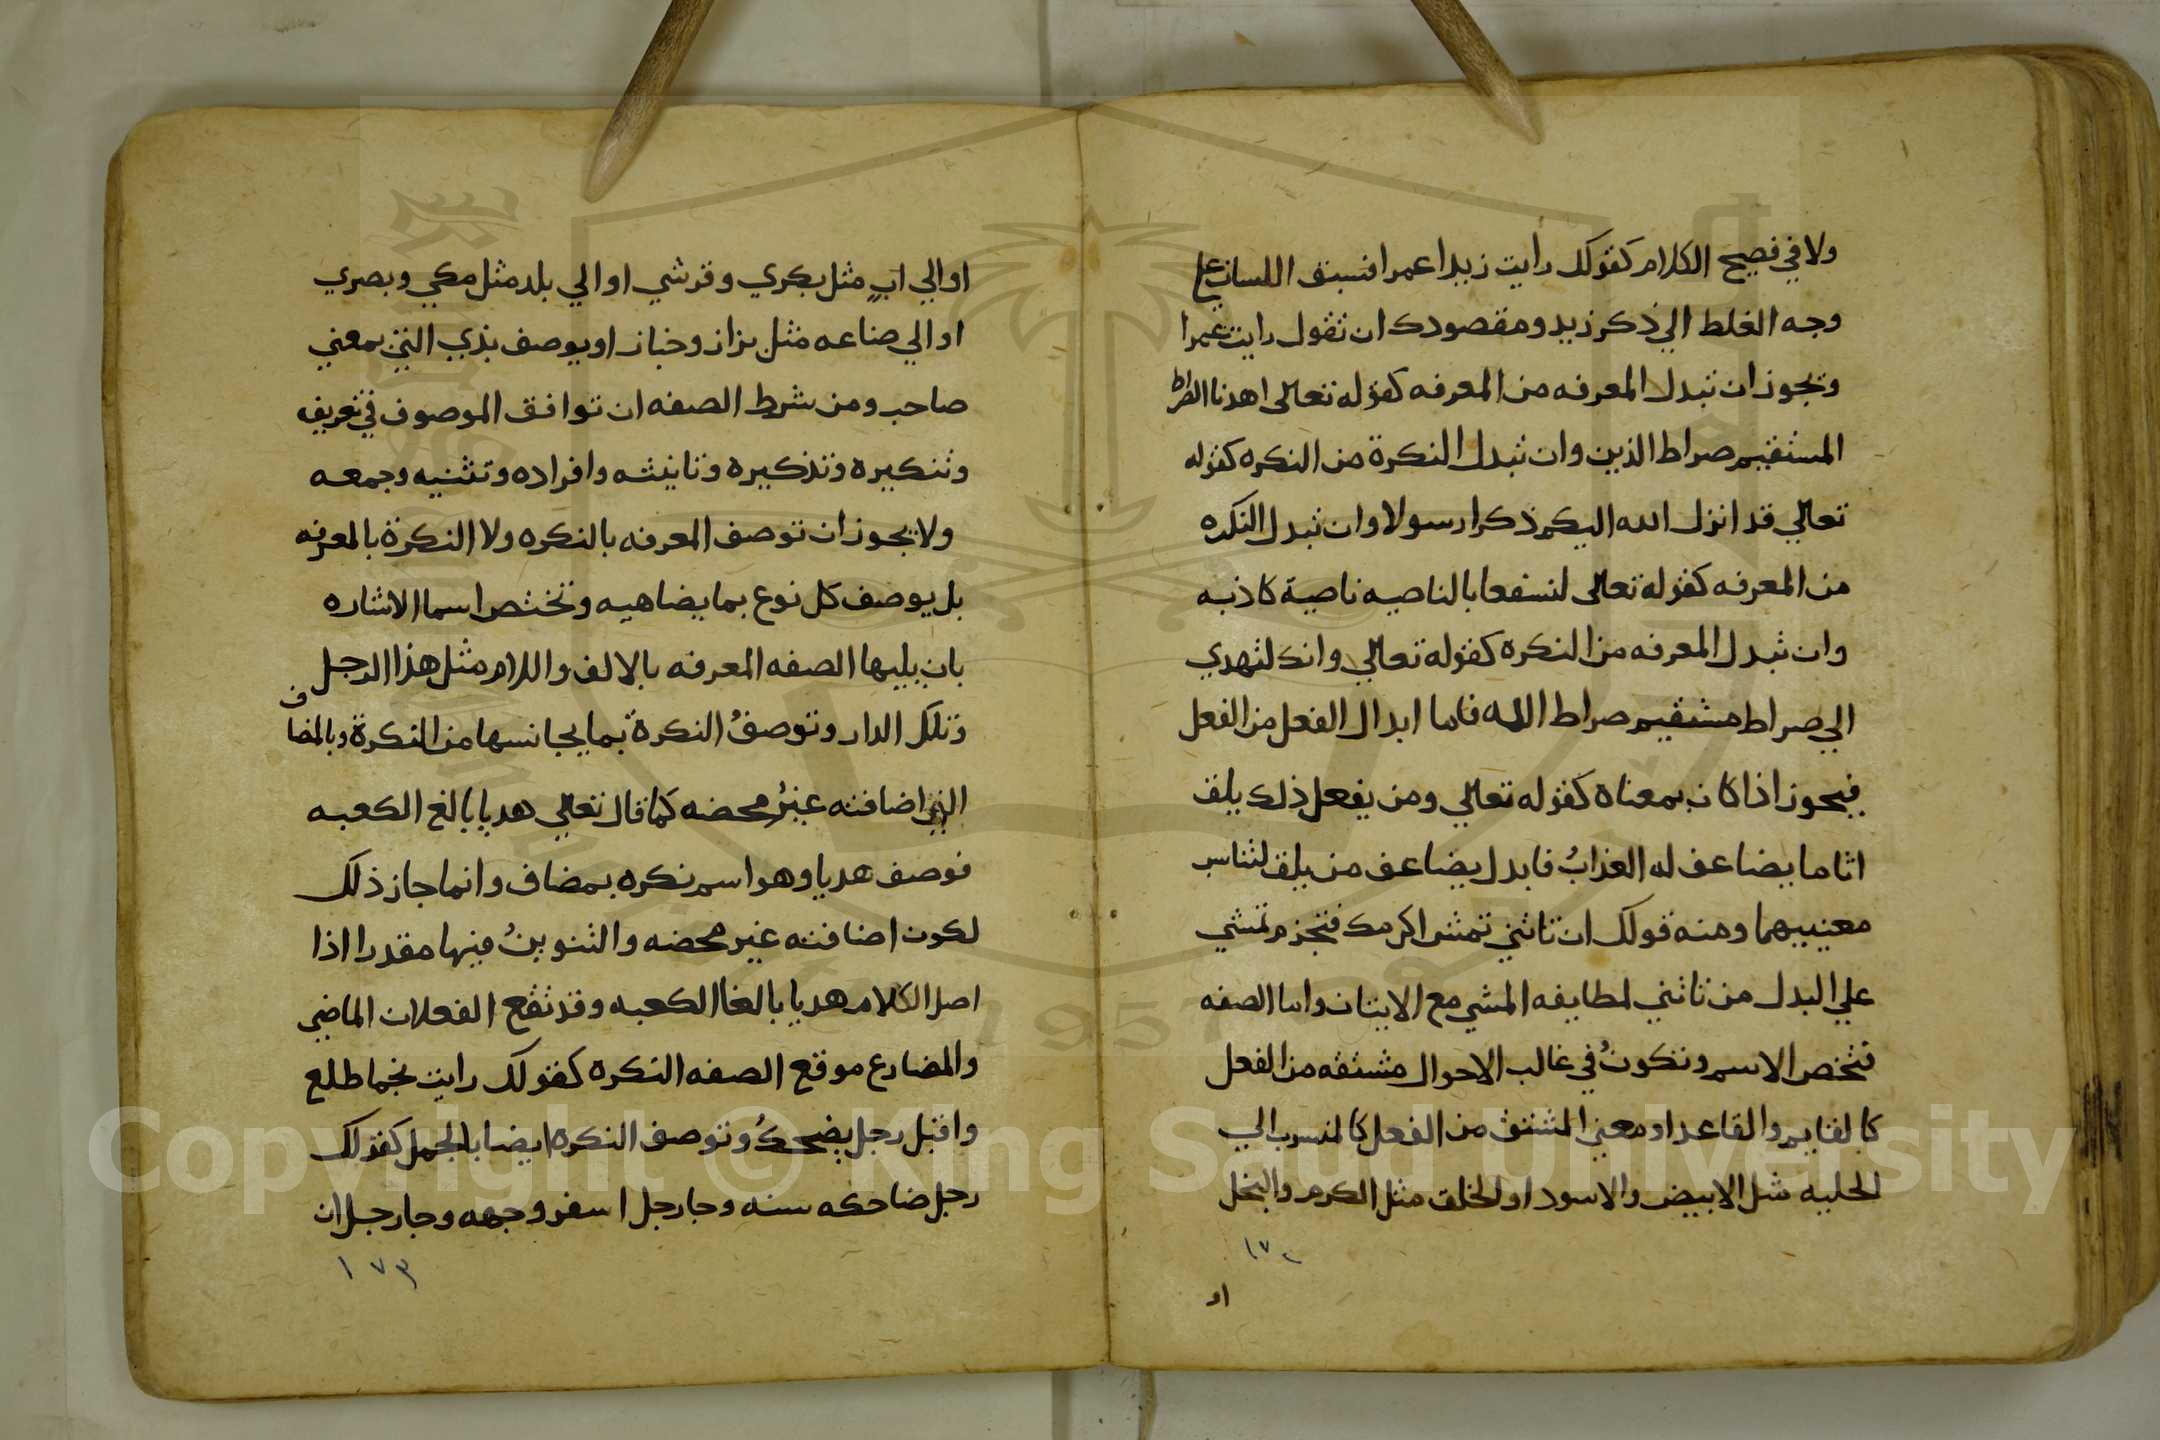 ولا في فصيح الكلام كقولك رايت زيدا عمرا فسبق اللسان علي
وجه الغلط الي ذكر زيد ومقصودك ان تقول رايت عمرا
ويجوز ان تبدل المعرفه من المعرفه كقوله تعالى اهدنا الصراط
المستقيم صراط الذين وان تبدل النكرة من النكره كقوله
تعالي قد انزل الله اليكم ذكرا رسولا وان تبدل النكره
من المعرفه كقوله تعالى لنسفعا بالناصيه ناصية كاذبه
وان تبدل المعرفه من النكرة كقوله تعالي وانك لتهدي
الي صراط مستقيم صراط الله فاما ابدال الفعل من الفعل
فيجوز اذا كان بمعناه كقوله تعالي ومن يفعل ذلك يلق
اثاما يضاعف له العذابُ فابدل يضاعف من يلق لتناسب
معنييهما ومنه قولك ان تاتني تمش اكرمك فتجزم تمشي
علي البدل من تاتني لمطابقه المشي مع الاتيان واما الصفه
فتختص الاسم وتكونُ في غالب الاحوال مشتقه من الفعل
كالقايم والقاعد او معني المشتق من الفعل كالمنسوب الي
الحليه مثل الابيض والاسود او الخلق مثل الكرم والبخل
١٧٢
او
او الي ابٍ مثل بكري وقرشي او الي بلد مثل مكي وبصري
او الي صناعه مثل بزاز وخباز او يوصف بذي التي بمعني
صاحب ومن شرط الصفه ان توافق الموصوف في تعريفه
وتنكيره وتذكيره وتانيثه وافراده وتثنيه وجمعه
ولا يجوز ان توصف المعرفه بالنكره ولا النكرة بالمعرفه
بل يوصف كل نوع بما يضاهيه وتختص اسما الاشاره
بان يليها الصفه المعرفه بالالف واللام مثل هذا الرجل
وتلك الدار وتوصفُ النكرة بما يجانسها من النكرة وبالمضاف
التي اضافته غيرُ محضه كما قال تعالي هديا بالغ الكعبه
فوصف هديا وهو اسم نكره بمضاف وانما جاز ذلك
لكون اضافته غير محضه والتنوينُ فيها مقدرا اذا
اصل الكلام هديا بالغا الكعبه وقد تقع الفعلان الماضي
والمضارع موقع الصفه النكره كقولك رايت نجما طلع
واقبل رجل يضحكُ وتوصف النكره ايضا بالجمل كقولك
رجل ضاحكه سنه وجا رجل اسفر وجهه وجا رجل ان
١٧٣